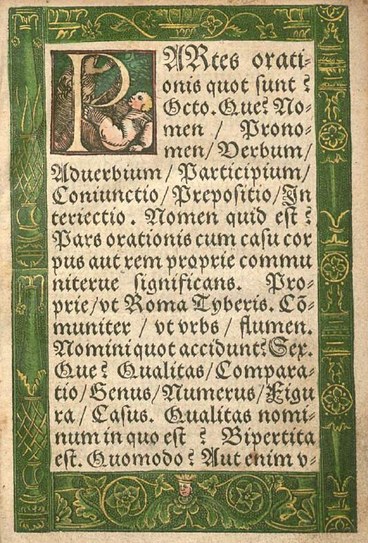 PARtes orati-
onis quot sunt?
Octo. Que? No-
men / Prono-
men / Verbum /
Aduerbium / Participium /
Coniunctio / Prepositio / In
teriectio. Nomen quid est?
Pars orationis cum casu cor
pus aut rem proprie commu
niterue significans. Pro-
prie / vt Roma Tyberis. Cõ-
muniter / vt vrbs / flumen.
Nomini quot accidunt? Sex.
Que? Qualitas / Compara-
tio / Genus / Numerus / Figu
ra / Casus. Qualitas nomi-
num in quo est? Bipertita
est. Quomodo? Aut enim v-